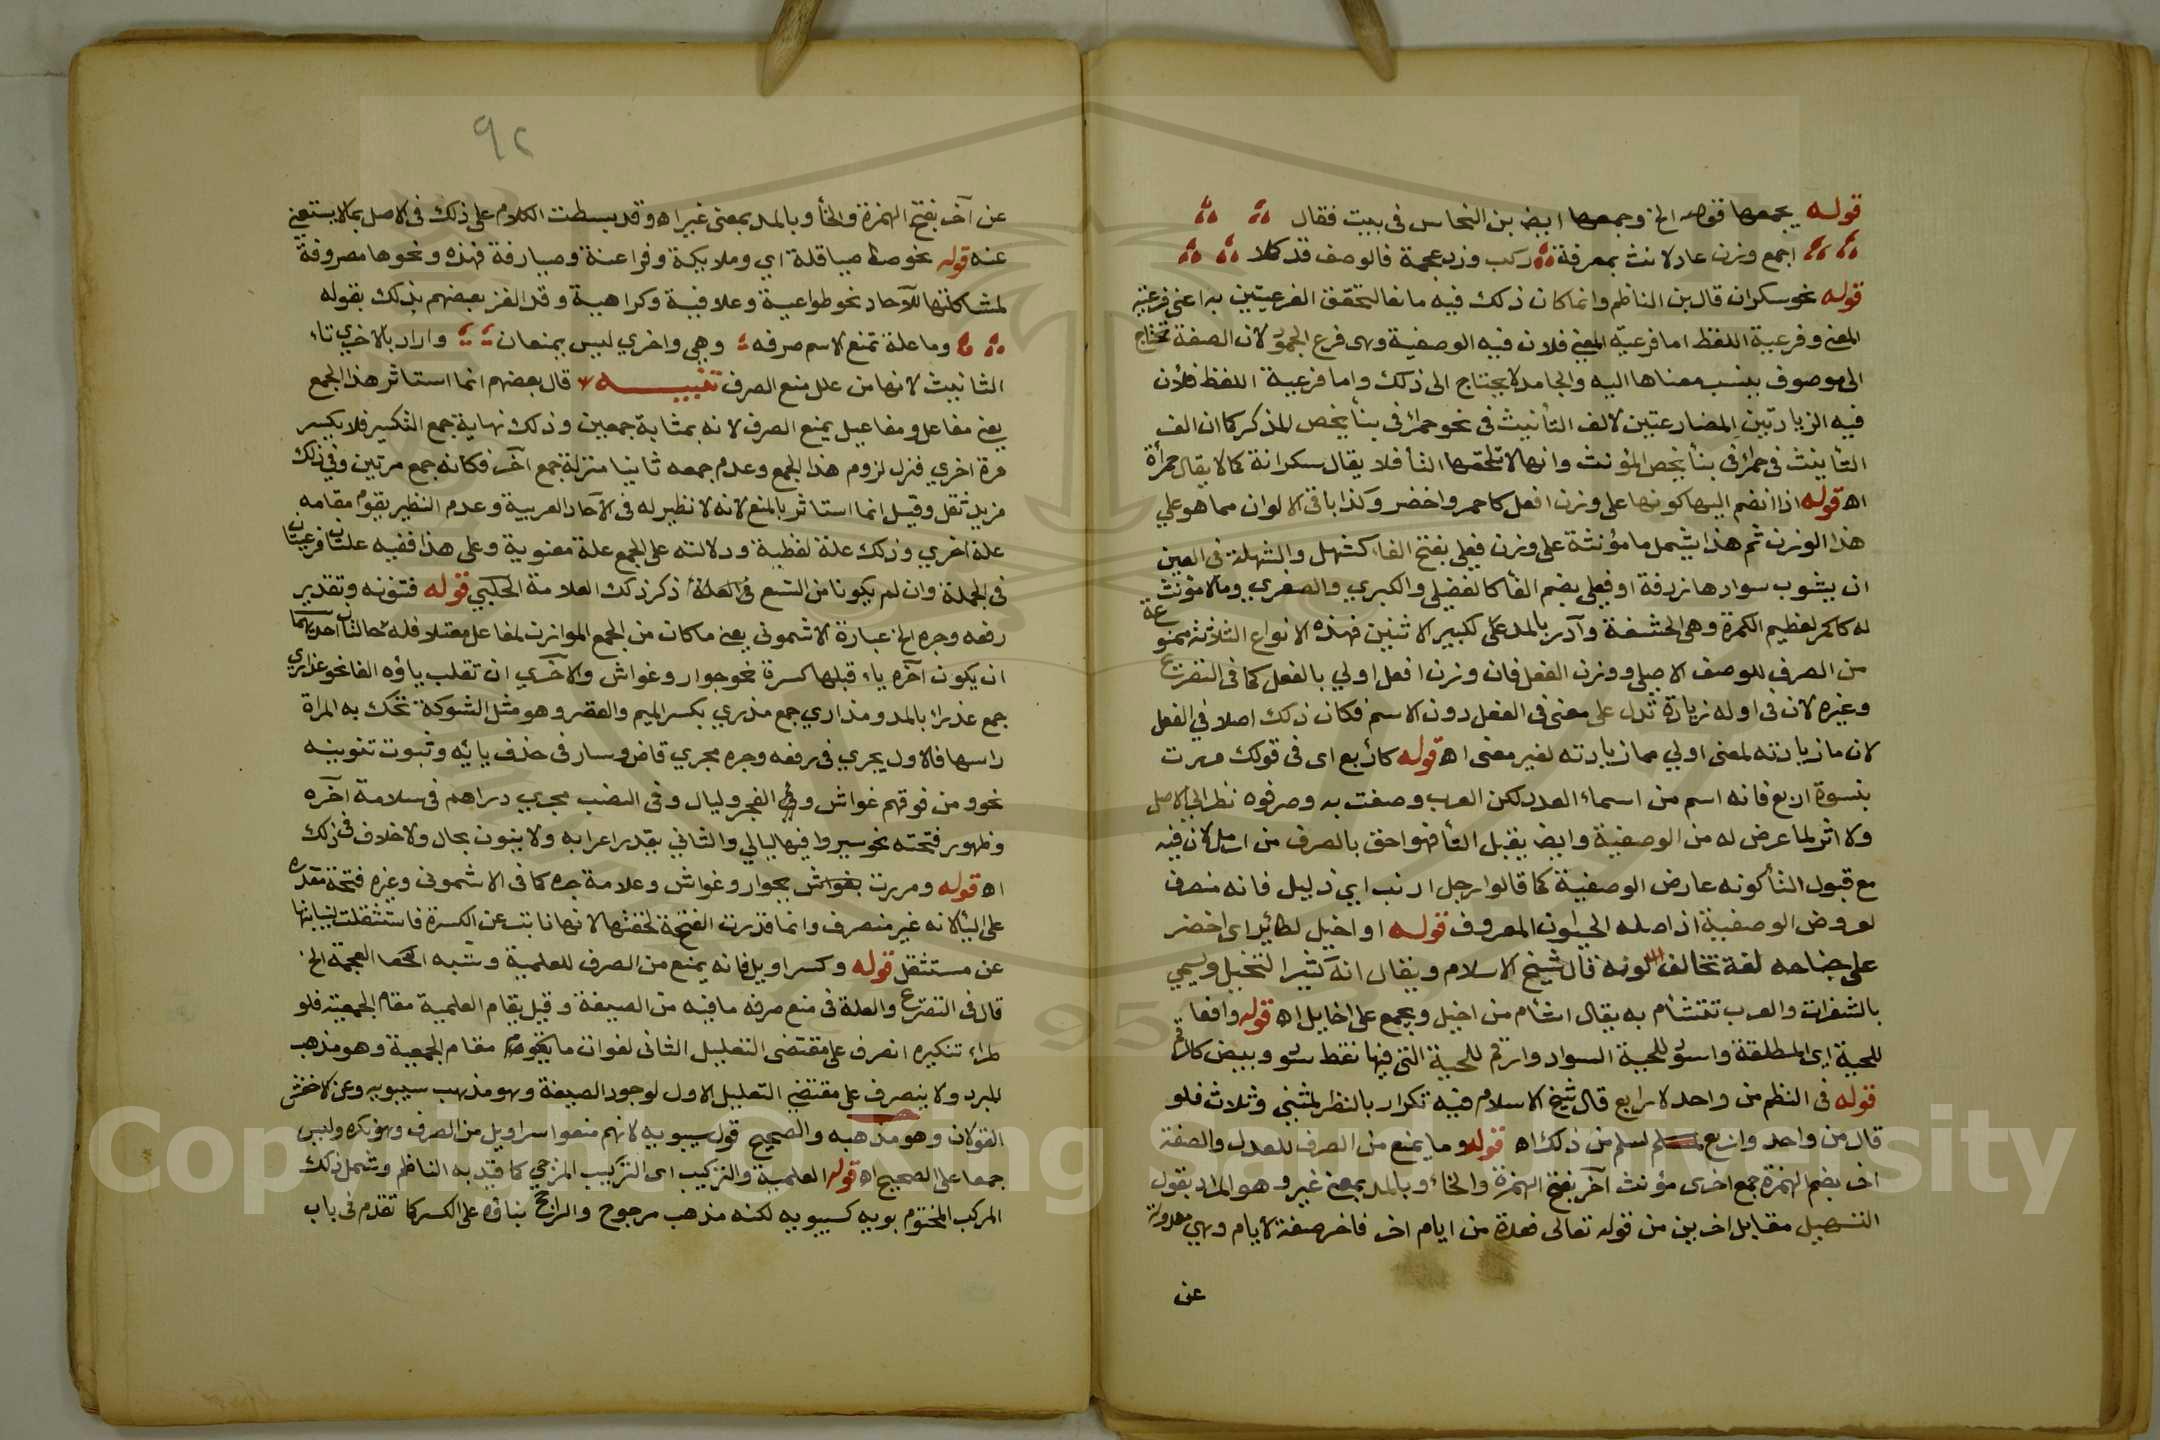 قوله يجمعها قوله الخ وجمعها ايض بن النحاس في بيت فقال
اجمع وزن عادلا نث بمعرفة ركب وزد عجمة فالوصف قد كلا
قوله نحو سكران قال بن الناظم وانما كان ذلك فيه مانعا لتحقق الفرعيتين به اعني فرعية
المعني وفرعية اللفظ اما فرعية المعني فلان فيه الوصفية وهي فرع الجمود لان الصفة تحتاج
الي موصوف ينسب معناها اليه والجامد لا يحتاج الي ذلك واما فرعية اللفظ فلان
فيه الزيادتين المضارعتين لالف التأنيث في نحو حمراء في بنأ يخص المذكر كما ان الف
التأنيث في حمراء في بنأ يخص المؤنث وانها لا تلحقها التأ فلا يقال سكرانة كما لا يقال حمرأة
اه قوله اذا انضم اليها كونها على وزن افعل كاحمر واخضر وكذا باقي الالوان مما هو علي
هذا الوزن ثم هذا يشمل ما مؤنثة على وزن فعلي بفتح الفاء كشهل والشهلة في العين
ان يشوب سوادها زرقة او فعلي بضم الفأ كالفضلي والكبري والصغري وما لا مؤنث
له كاكمر لعظيم الكمرة وهي الحشفة وآدر بالمد علي كبير الانثيين فهذه الانواع الثلاثة ممنوعة
من الصرف للوصف الاصلي ووزن الفعل فان وزن افعل اولي بالفعل كما في التفرع
وغيره لان في اوله زيادة تدل على معنى في الفعل دون الاسم فكان ذلك اصلا في الفعل
لان ما زيادته لمعنى اولي مما زيادته لغير معنى اه قوله كاربع اى في قولك مررت
بنسوة اربع فانه اسم من اسماء العدد لكن العرب وصفت به وصرفوه نظر الي الاصل
ولا اثر لما عرض له من الوصفية وايض يقبل التأ فهو احق بالصرف من ارمل لان فيه
مع قبول التأ كونه عارض الوصفية كما قالوا رجل ارنب اي ذليل فانه منصرف
لعروض الوصفية اذ اصله الحيوان المعروف قوله او اخيل لطائر اى اخضر
على جناحه لمعة تخالف لونه قال شيخ الاسلام ويقال انه كثير التخيل ويسمي
بالشقراق والعرب تتشأم به يقال اشأم من اخيل ويجمع على اخايل اه قوله وافعا
للحية اي المطلقة واسود للحية السواد وارقم للحية التي فيها نقط سود وبيض كالرقم
قوله في النظم من واحد لاربع قال شيخ الاسلام فيه تكرار بالنظر لمثني وثلاث فلو
قال من واحد واربع لسلم من ذلك اه قوله وما يمنع من الصرف للعدل والصفة
اخر بضم الهمزة جمع اخرى مؤنث آخر بفتح الهمزة والخاء وبالمد بمعني غير وهو المراد بقول
التسهيل مقابل اخرين من قوله تعالى فعدة من ايام اخر فاخر صفة لايام وهي معدولة
عن
٩٢
عن آخر بفتح الهمزة والخأ وبالمد بمعنى غير اه وقد بسطت الكلام على ذلك في الاصل بما لا يستغني
عنه قوله نحو صياقلة اي وملايكة وفراعنة وصيارفة فهذه ونحوها مصروفة
لمشاكلتها للآحاد نحو طواعية وعلافية وكراهية وقد الغز بعضهم بذلك بقوله
وما علة تمنع لاسم صرفه وهي واخري ليس يمنعان واراد بالاخري تاء
التانيث لانها من علل منع الصرف تنبيه قال بعضهم انما استاثر هذا الجمع
يعني مفاعل ومفاعيل يمنع الصرف لانه بمثابة جمعين وذلك نهاية جمع التكسير فلا يكسر
مرة اخري فنزل لزوم هذا الجمع وعدم جمعه ثانيا منزلة جمع آخر فكانه جمع مرتين وفي ذلك
مزيد ثقل وقيل انما استاثر بالمنع لانه لا نظير له في الآحاد العربية وعدم النظير يقوم مقامه
علة اخري وذلك علة لفظية ودلالته على الجمع علة معنوية وعلى هذا ففيه علتان فرعيتان
في الجملة وان لم يكونا من التسع في العلة ذكر ذلك العلامة الحلبي قوله فتنونه وتقدير
رفعه وجره الخ عبارة الاشموني يعني ما كان من الجمع الموازن لمفاعل معتلا فله حالتان احديهما
ان يكون آخره ياء قبلها كسرة نحو جوار وغواش والاخري ان تقلب ياؤه الفا نحو عذاري
جمع عذراء بالمد ومداري جمع مدري بكسر الميم والقصر وهو مثل الشوكة تحك به المراة
راسها فالاول يجري في رفعه وجره مجري قاض وسار في حذف يائه وثبوت تنوينه
نحو ومن فوقهم غواش والفجر وليال وفي النصب مجري دراهم في سلامة آخره
وظهور فتحته نحو سيروا فيها ليالي والثاني يقدر اعرابه ولا ينون بحال ولا خلاف في ذلك
اه قوله ومررت بجوار وغواش وعلامة جره كما في الاشموني وغيره فتحة مقدرة
على اليأ لانه غير منصرف وانما قدرت الفتحة لخفتها لانها نابت عن الكسرة فاستثقلت لنيابتها
عن مستثقل قوله وكسراويل فانه يمنع من الصرف للعلمية وشبه العجمة الخ
قال في التفرع والعلة في منع صرفه ما فيه من الصيغة وقيل يقام العلمية مقام الجمعية فلو
طراء تنكيره انصرف على مقتضى التعليل الثاني لفوات ما يقوم مقام الجمعية وهو مذهب
المبرد ولا ينصرف على مقتضى التعليل الاول لوجود الصيغة وهو مذهب سيبويه وعن الاخفش
القولان وهو مذهبه والصحيح قول سيبويه لانهم منعوا سراويل من الصرف وهو نكره وليس
جمعا على الصحيح اه قوله العلمية والتركيب اى التركيب المزجي كما قيد به الناظم وشمل ذلك
المركب المختوم بويه كسيبويه لكنه مذهب مرجوح والراجح بناؤه على الكسر كما تقدم في باب